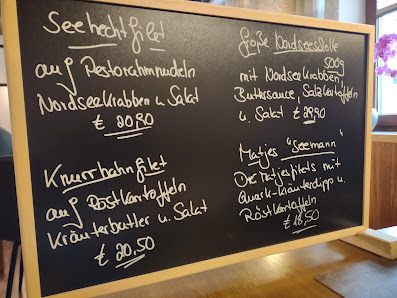 Seehechtfilet
auf Pestorahmnudeln
Nordseekrabben u. Salat
€ 20,90
Knurrhahnfilet
auf Röstkartoffeln
Kräuterbutter u. Salat
€ 20,50
große Nordseescholle
500g
mit Nordseekrabben,
Buttersauce, Salzkartoffeln
u. Salat € 29,90
Matjes "Seemann"
Drei Matjesfilets mit
Quark-Kräuterdipp u.
Röstkartoffeln
€ 18,50